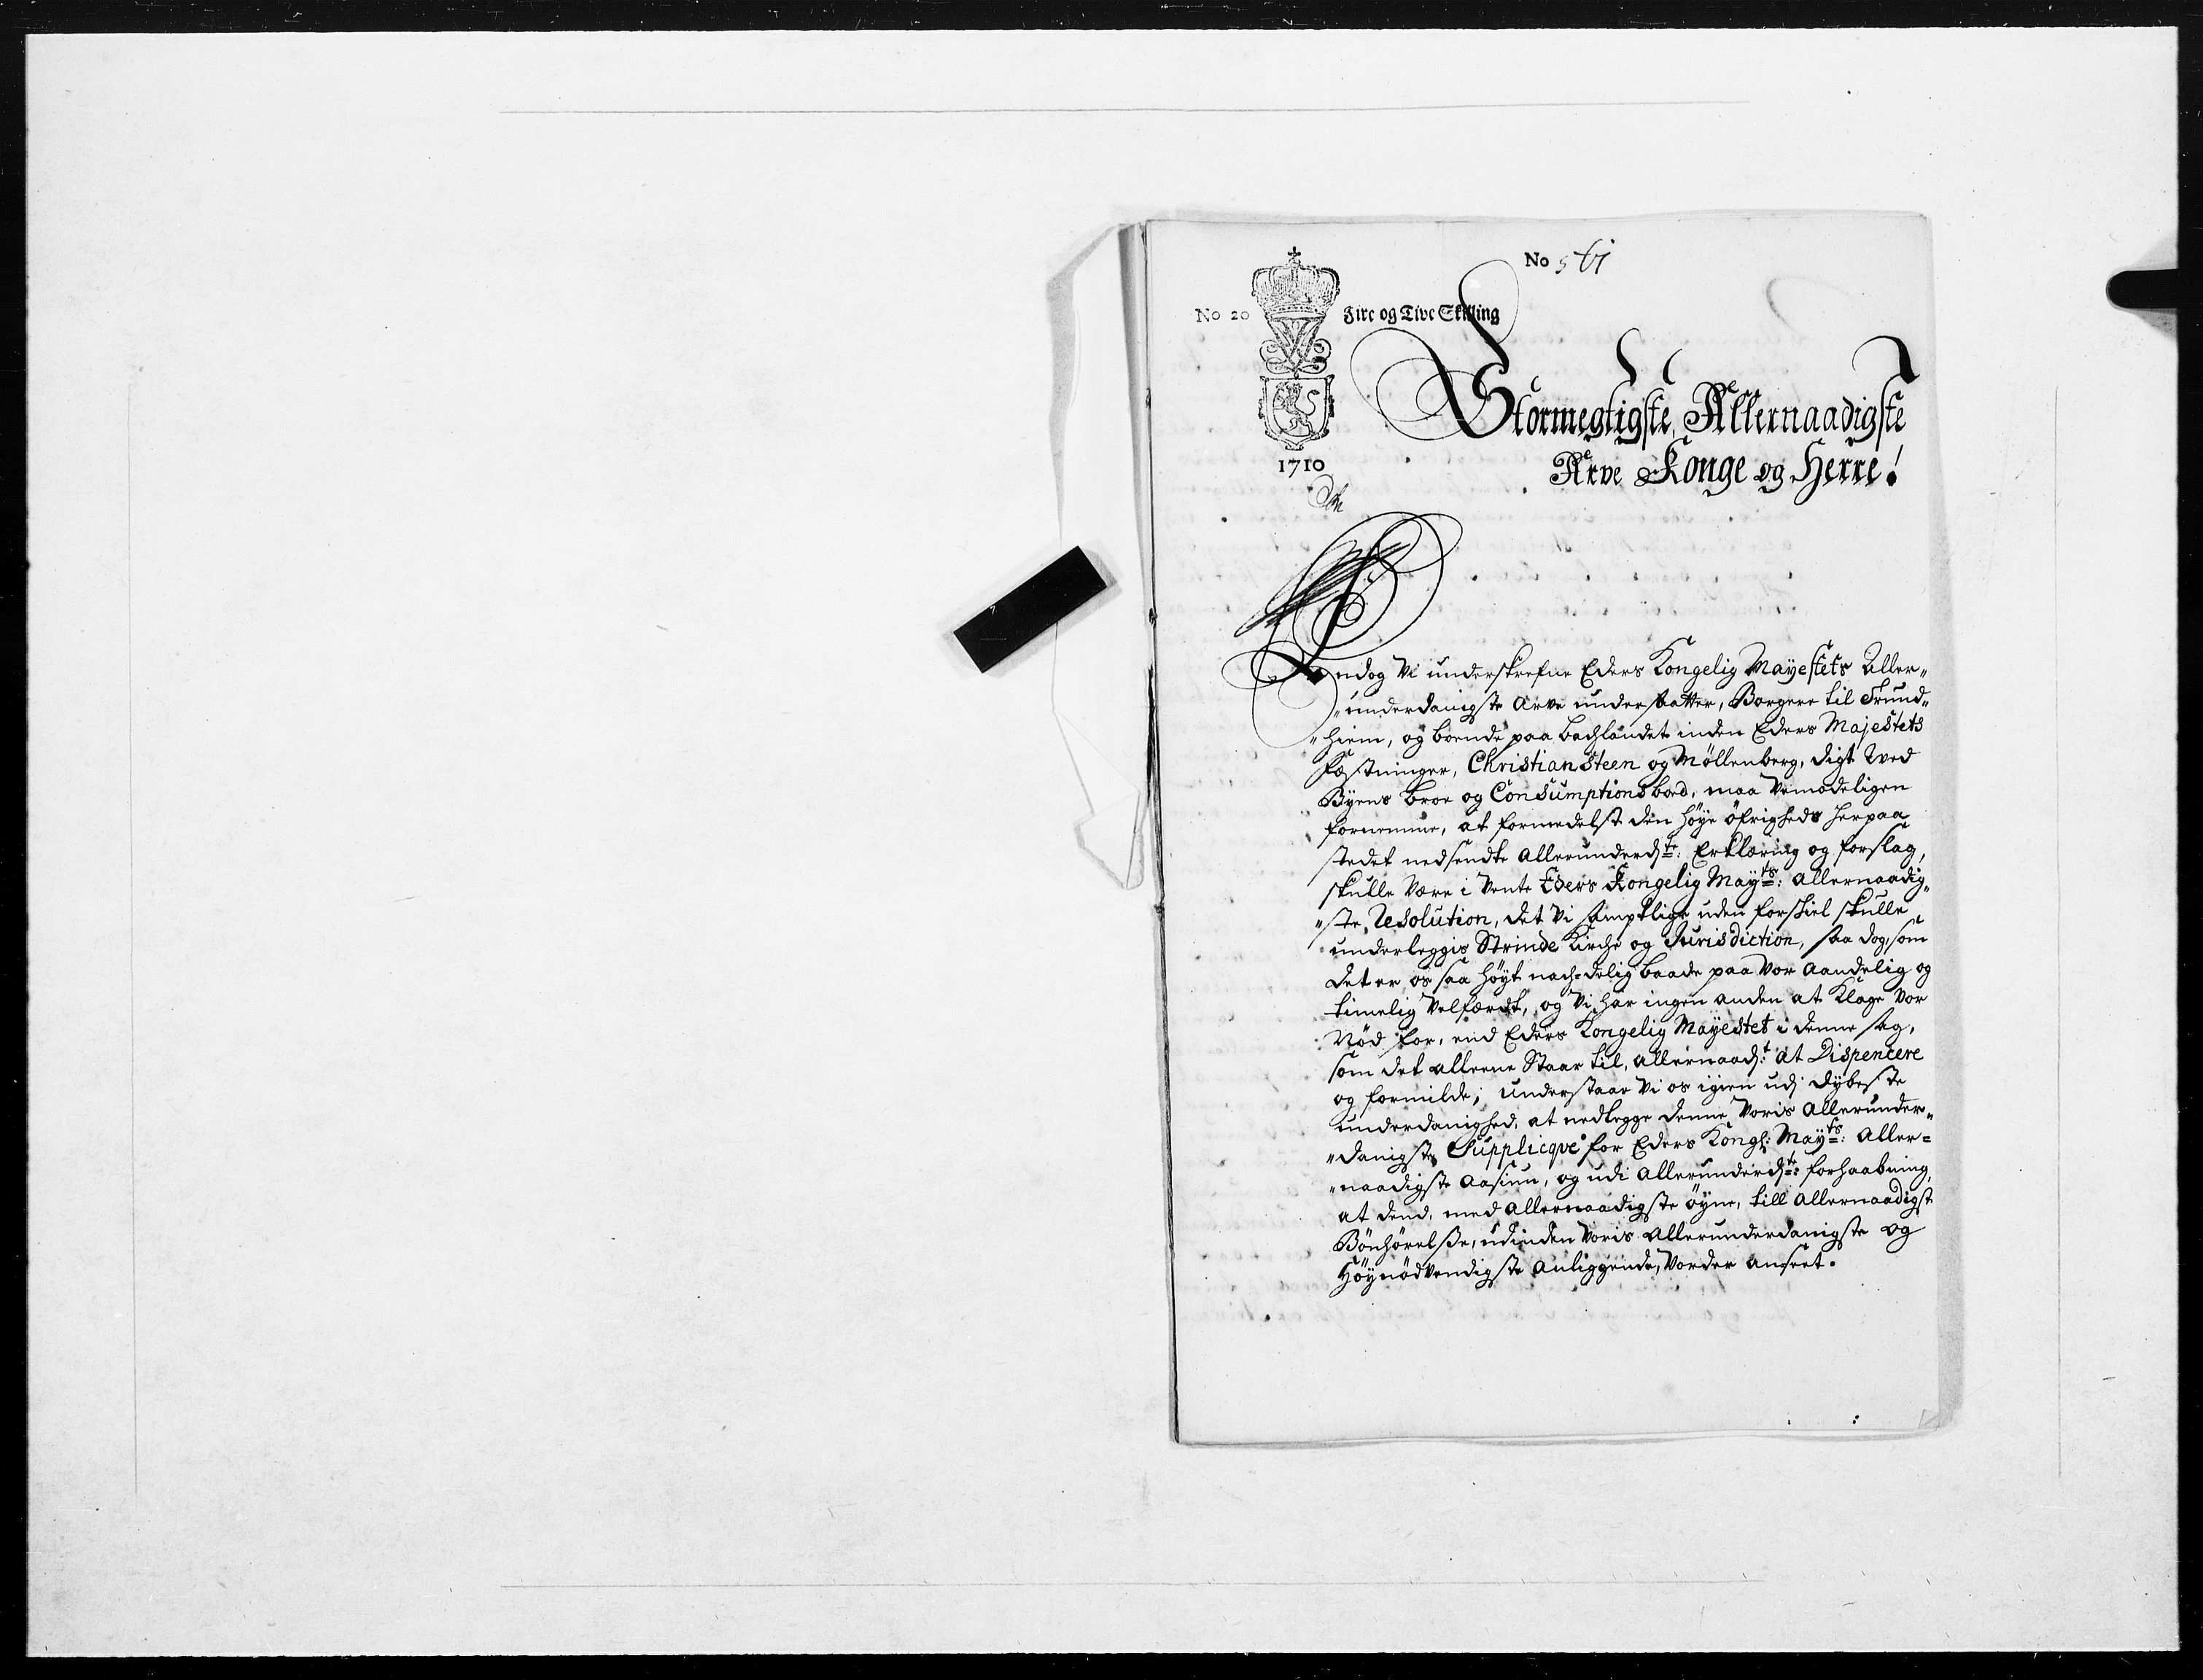 No 561
No 20 Fire og Tive Skilling
1710
Stormegtigste, Allernaadigste
Arve Konge og Herre!
Endog Vi underskrefne Eders Kongelig Mayestets Aller„
„underdanigste Arve undersatter, Borgere til Trund„
„hiem, og boende paa bachlandet inden Eders Majestets
Fæstninger, Christiansteen og Møllenberg, digt Wed
Byens broe og Consumptions bod, maa Vemodeligen
fornemme, at formedelst den høye øfrigheds herpaa
stedet nedsendte allerunderdste: Erklæring og forslag,
skulle Være i Vente Eders Kongelig Mayts: allernaadig„
„ste Resolution, det Vi samptlige uden forskiel skulle
underleggis Strinde Kirche og Jurisdiction, saa dog, som
det er os saa høyt nach-delig baade paa Vor aandelig og
timelig Velfærdt, og Vi har ingen anden at Klage Vor
Nød for, end Eders Kongelig Mayestet i denne sag,
som det alleene Staar til, allernaadt: at Dispencere
og formilde; understaar Vi os igien udj dybeste
underdanighed, at nedlegge denne Voris Allerunder„
„danigste Supplicqve for Eders Kongl: Mayts: Aller=
„naadigste Aasiun, og udi Allerunderdte: forhaabning,
at dend, med allernaadigste øyne, till allernaadigst
Bønhørelsse, udinden Voris allerunderdanigste og
Høynødvendigste anliggende, Vorder anseet.